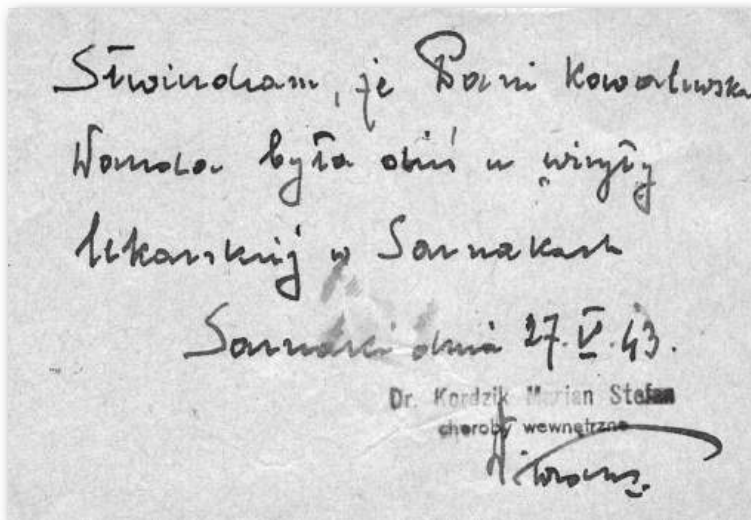 Stwierdzam, że Pani Kowalewska
Wanda była dziś u wizyty
lekarskiej w Sarnakach
Sarnaki dnia 27.V.43.
Dr. Kordzik Marian Stefan
choroby wewnętrzne